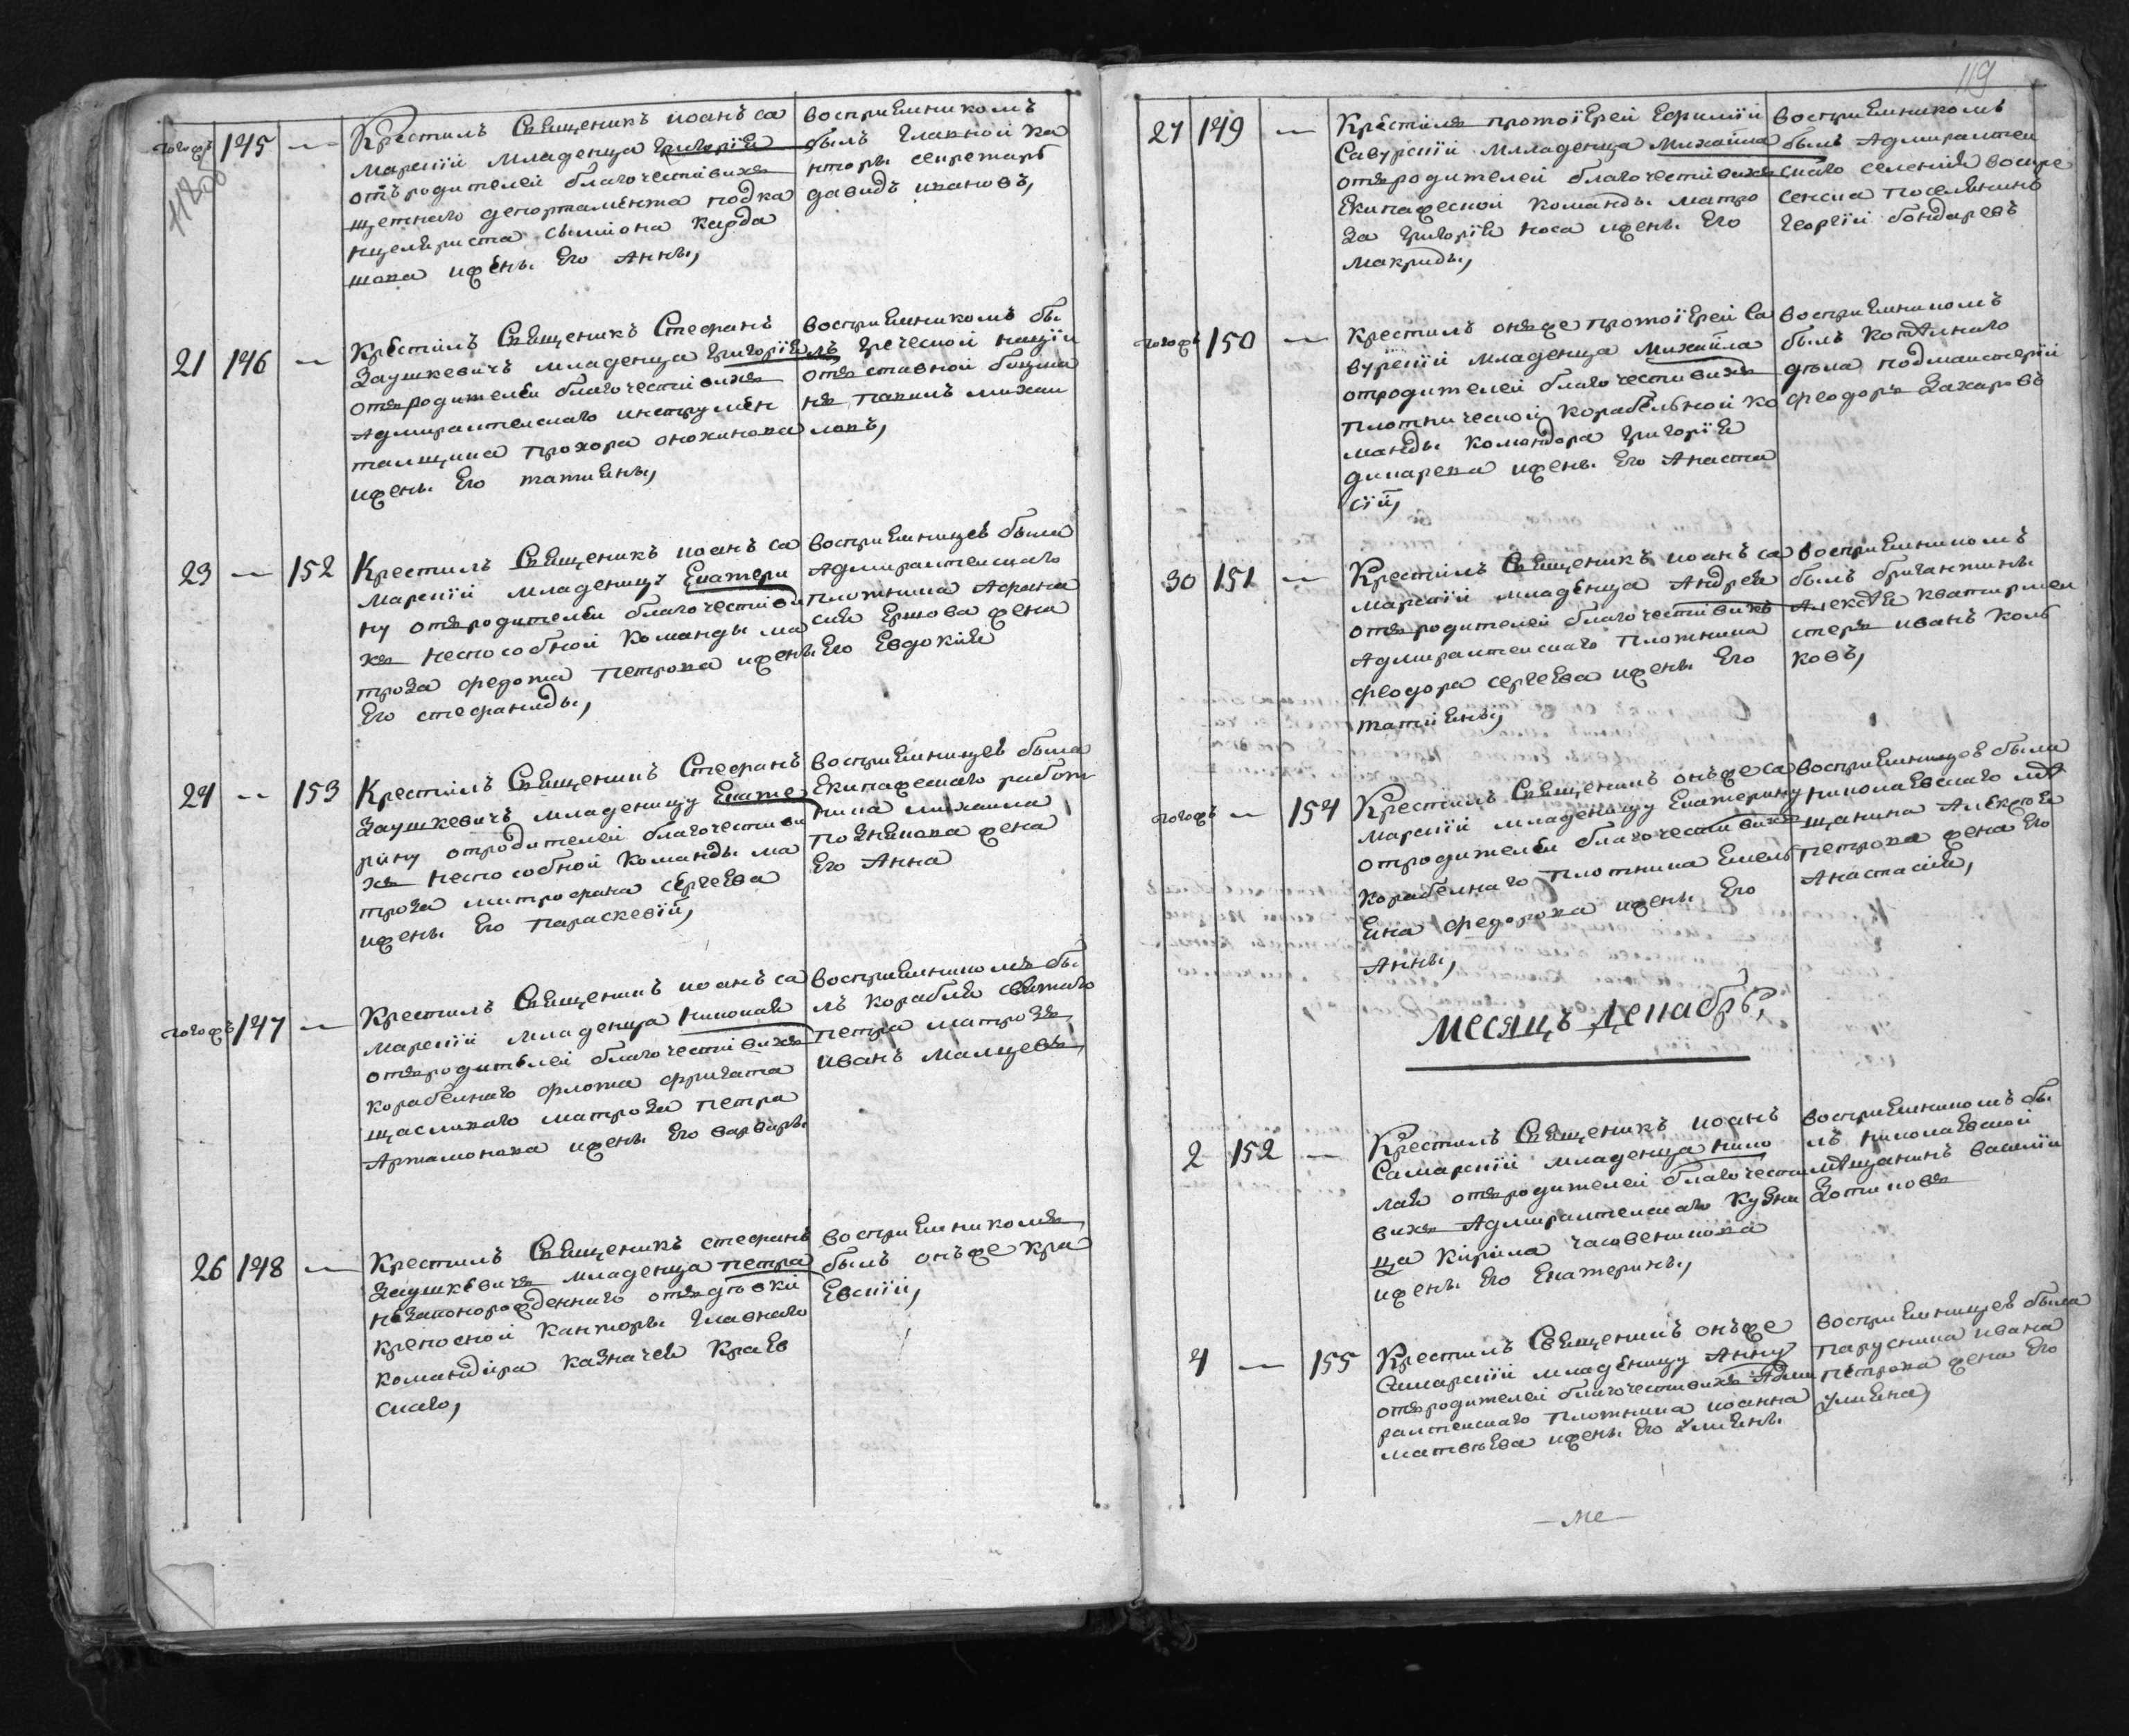 тогожъ 145 — Крестилъ Священикъ иоанъ са
марскїй младенца григорїя
отъ родителей благочестивихъ
щетнаго департамента подка
нцеляриста сымиона карда
шова ижены Его Анны,
восприемникомъ
былъ главной ка
нторы секретарь
давидъ ивановъ,
118об
21 146 — Крестилъ Священикъ Стефанъ
Заушкевичъ младенца григорїя
отъ родителей благочестивихъ
Адмиралтейскаго инструмен
талщика прохора
ижены Его татиены,
восприемникомъ бы
лъ греческой нацїи
отъ ставной боцма
нъ павилъ михаи
ловъ,
23 — 152 Крестилъ Священикъ иоанъ са
марскїй младеницу Екатери
ну отъ родителей благочестиви
хъ неспособной команды ма
троза федота петрова ижены
Его стефаниды,
восприемницей была
Адмиралтейскаго
плотника Афана
сия Ершова жена
Его Евдокия
24 — 153 Крестилъ Священикъ Стефанъ
Заушкевичъ младеницу Екате
рину отродителей благочестиви
хъ неспособной команды ма
троза митрофана сергеева
ижены Его параскевїй,
восприемницей была
Екипажескаго работ
ника михаила
позникова жена
Его Анна
тогожъ 147 — Крестилъ Священикъ иоанъ са
марскїй младенца николая
отъ родителей благочестивихъ
корабелнаго флота фригата
щасливаго матроза петра
Артамонова ижены Его варвары
восприемникомъ бы
лъ корабля святаго
петра матрозъ
иванъ малцевъ
26 148 — Крестилъ Священикъ стефанъ
Заушкевичъ младенца петра
незаконорожденнаго отъ девки
крепосной канторы главнаго
командира казначея краев
скаго,
восприемникомъ
былъ онъже кра
Евскїй,
119
27 149 — Крестилъ протоїерей Ефимїй
Савурскїй младенца михаила
отъ родителей благочестивихъ
Екипажеской команды матро
за григорїя носа ижены Его
макриды,
восприемникомъ
былъ Адмиралтей
скаго селения воскре
сенска поселянинъ
георгїй бондаревъ
тогожъ 150 — Крестилъ онъже протоїерей Са
вурскїй младенца михаила
отродителей благочестивихъ
плотнической корабельной ко
манды командора григорїя
ижены Его Анаста
сїй,
восприемникомъ
былъ котелнаго
дела подмастерїй
феодоръ Захаровъ
30 151 — Крестилъ Священикъ иоанъ са
марскїй младенца Андрея
отъ родителей благочестивихъ
Адмиралтейскаго плотника
феодора сергеева ижены Его
татиены,
восприемникомъ
былъ бригантины
Алексея квартирмей
стеръ иванъ коль
ковъ,
тогожъ — 154 Крестилъ Священикъ онъже са
марскїй младеницу Екатерину
отродителей благочестивихъ
корабелнаго плотника Емель
Яна федорова ижены Его
Анны,
восприемницей была
николаевскаго ме
щанина Алексея
петрова жена Его
Анастасия,
месяцъ декабрь,
2 152 — Крестилъ Священикъ иоанъ
Самарскїй младенца нико
лая отъ родителей благочести
вихъ Адмиралтейскаго кузни
ца кирила часовеникова
ижены Его Екатерины,
восприемникомъ бы
лъ николаевской
мещанинъ василїй
Зотиковъ
4 — 155 Крестилъ Священикъ онъже
Самарскїй младеницу Анну
отъ родителей благочестивихъ Адми
ралтейскаго плотника иоанна
матвеева ижены Его Улияны
восприемницей была
парусника ивана
петрова жена Его
Улияна,
— ме —